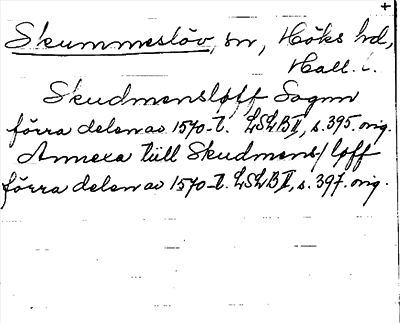 +
Skummeslöv, sn, Höks hd,
Hall. l.
Skudmensløff Sognn
förra delen av 1570-t. LSLB II, s. 395. orig.
Annexa till Skudmens/løff
förra delen av 1570-t. LSLB II, s. 397. orig.